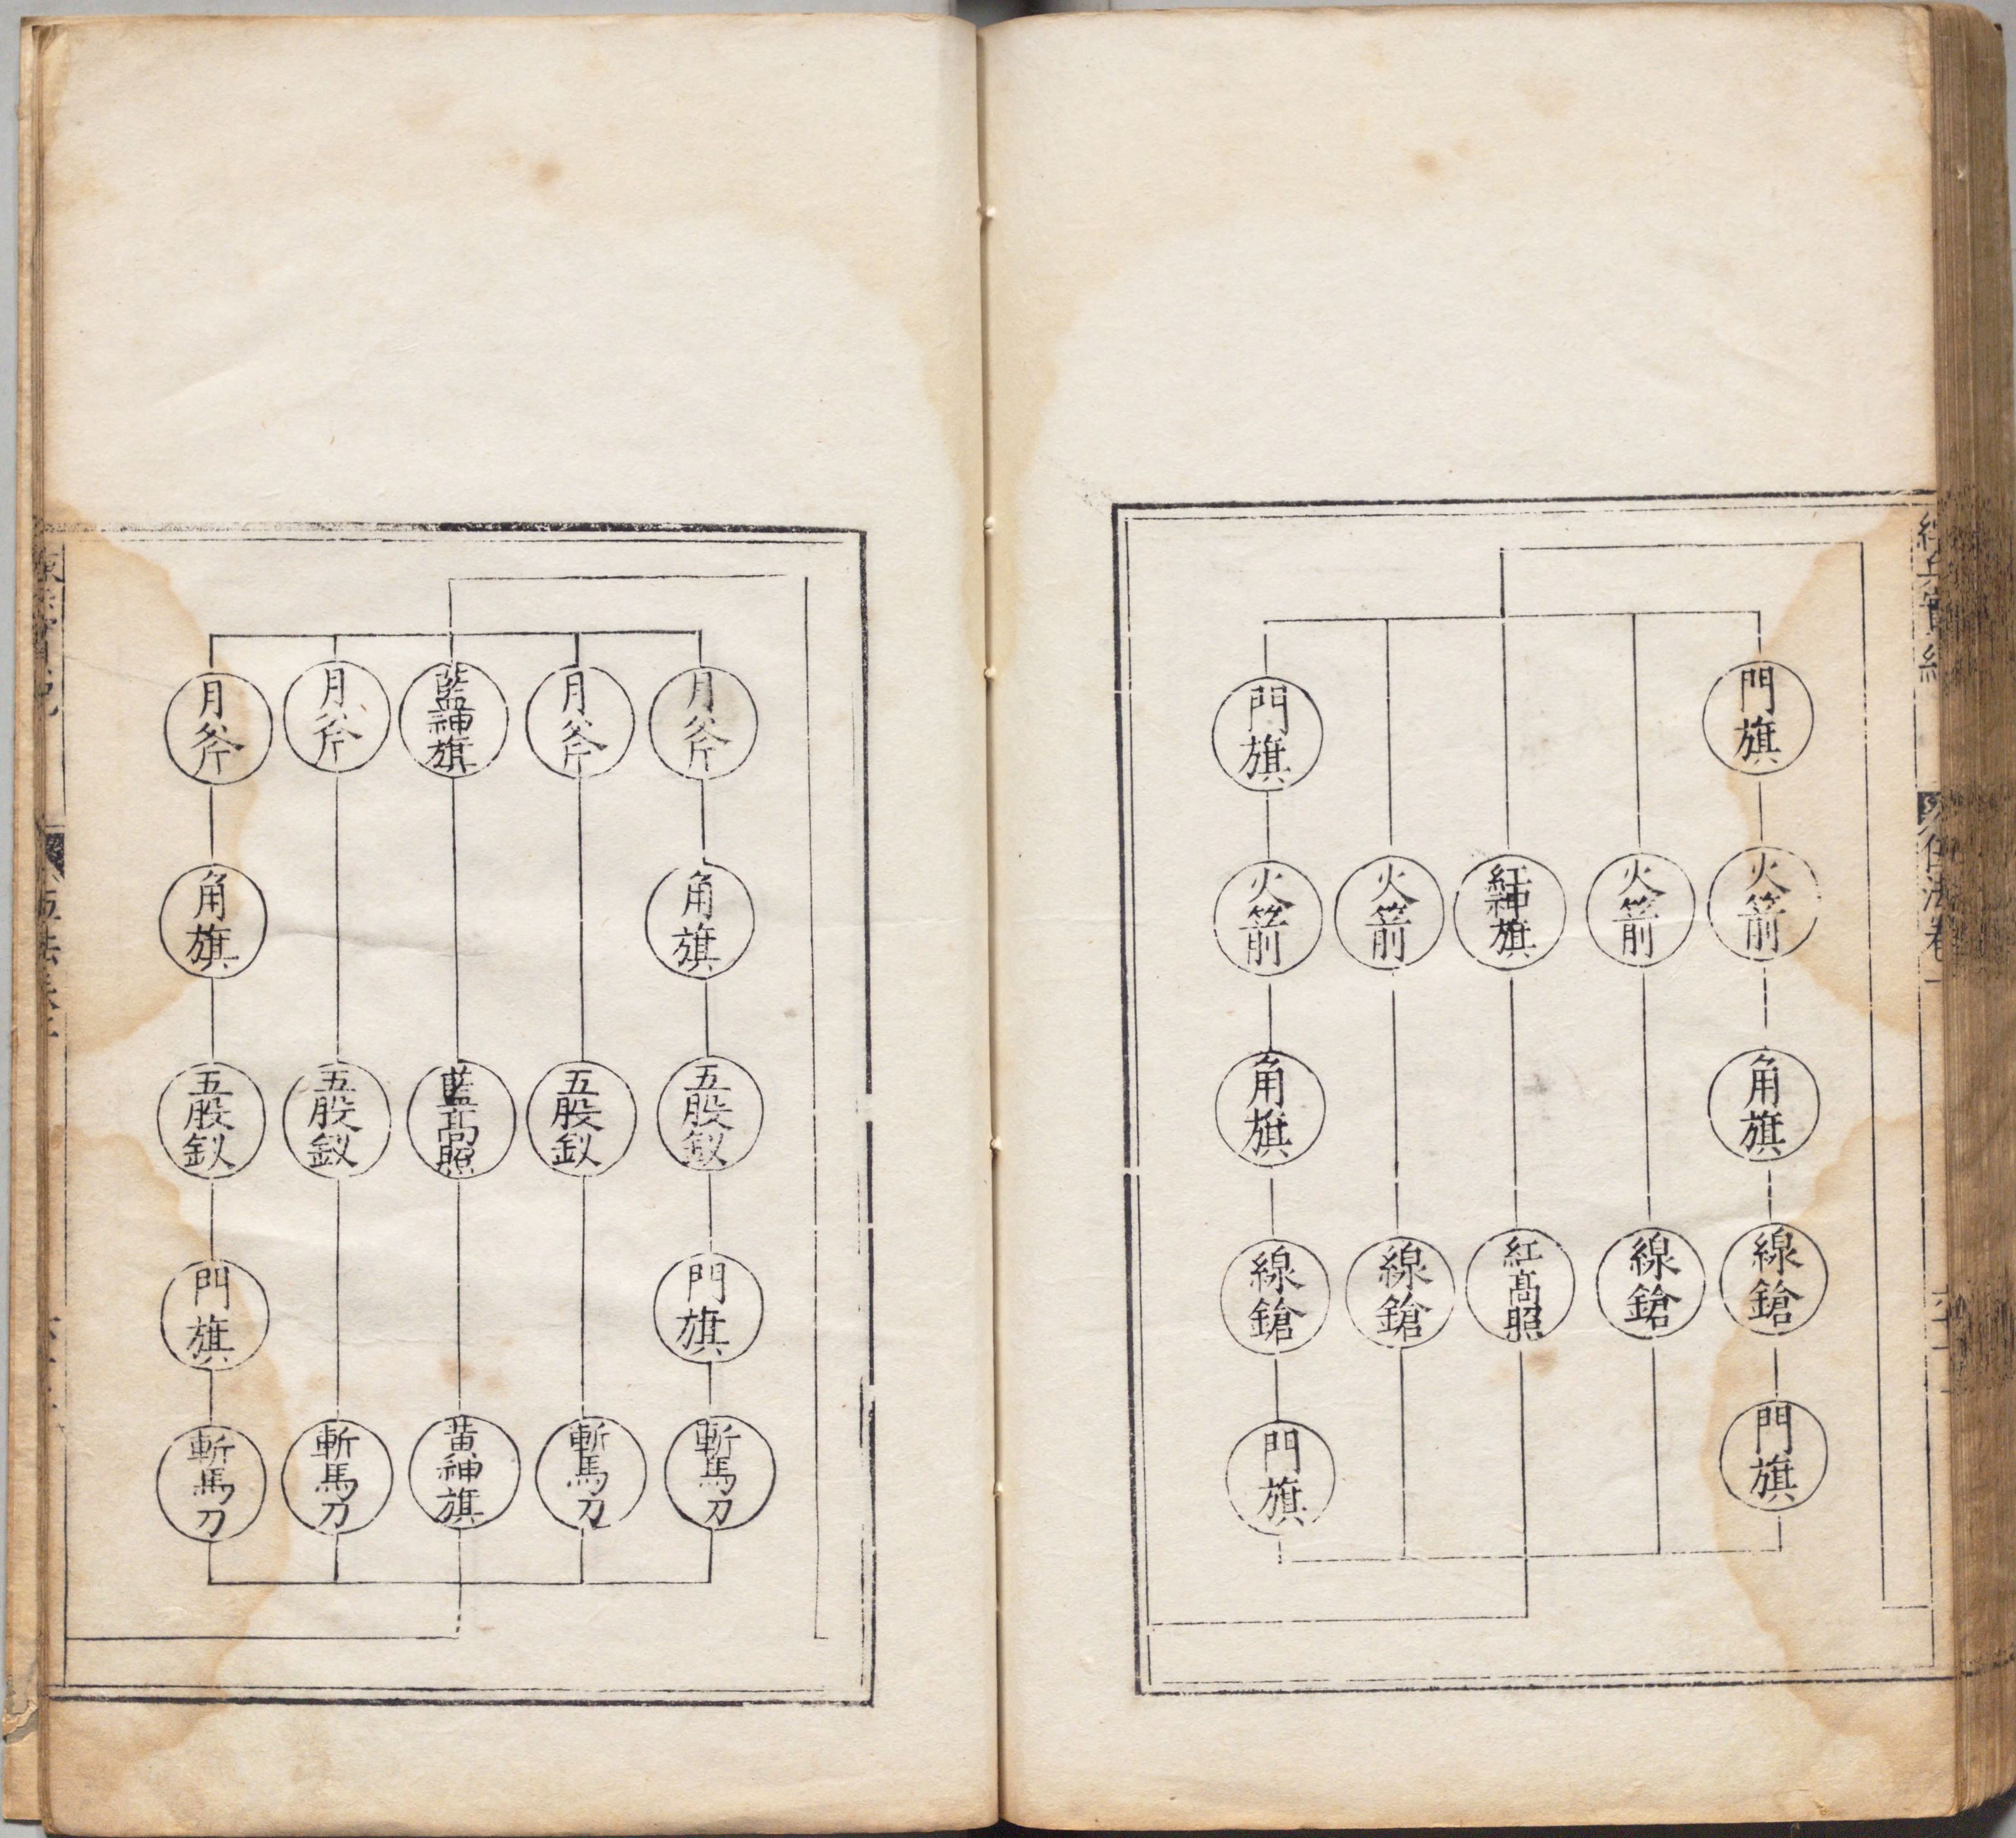 門旗
火箭
角旗
線鎗
門旗
火箭
線鎗
紅神旗
紅高照
火箭
線鎗
門旗
火箭
角旗
線鎗
門旗
月斧
角旗
五股釵
門旗
斬馬刀
月斧
五股釵
斬馬刀
藍神旗
藍高照
黃神旗
月斧
五股釵
斬馬刀
月斧
角旗
五股釵
門旗
斬馬刀